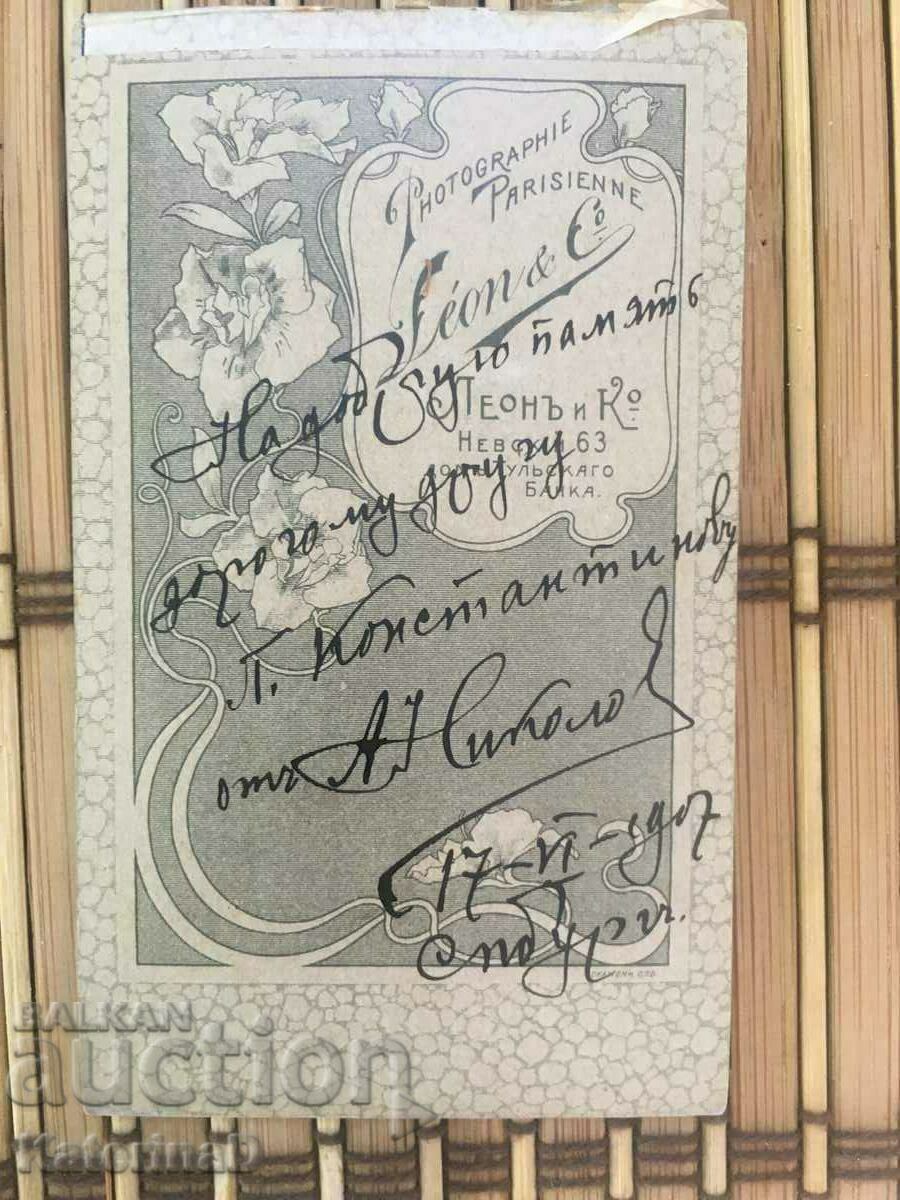 PHOTOGRAPHIE
PARISIENNE
Léon & Co.
ЛЕОНЪ и Ко
НЕВСКІЙ, 63
БАНКА.
На добрую память
дорогому другу
П. Константинову
отъ А Николов
17-VI-1907
Спбургъ.
BALKAN
auction
KaterinaD